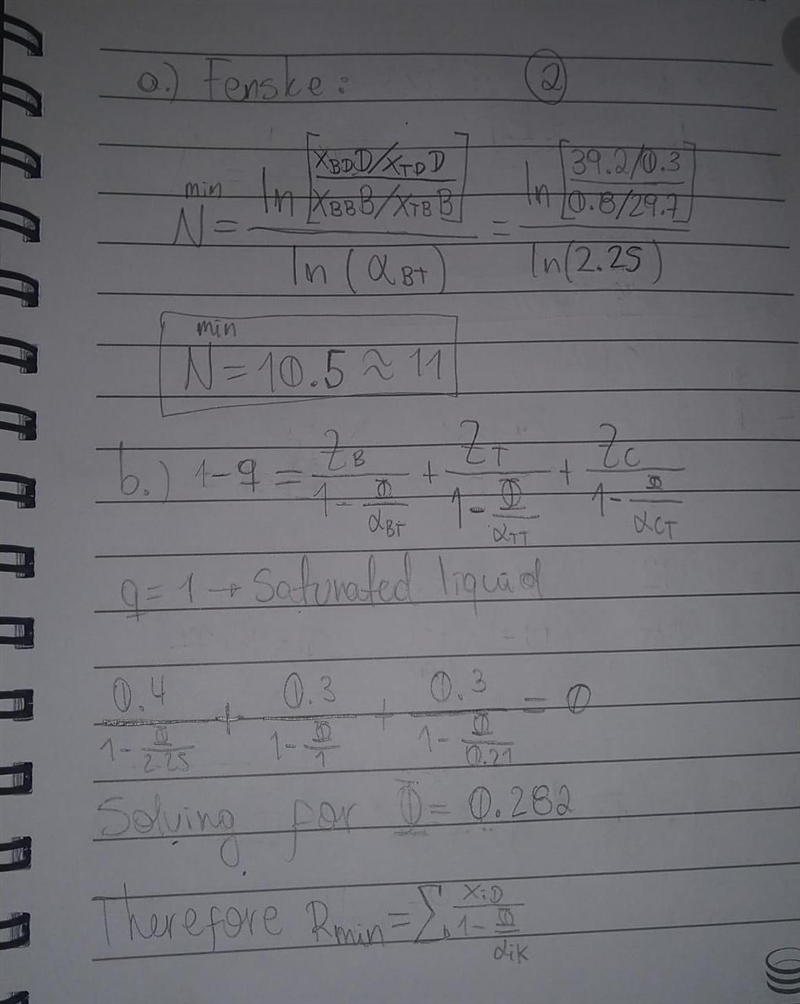 a.) Fenske: ②
N^min = ln[(x_BD D/x_TD D)/(x_BB B/x_TB B)]/ln(α_BT) = ln[(39.2/0.3)/(0.8/29.7)]/ln(2.25)
N^min = 10.5 ≈ 11
b.) 1-q = Z_B/(1-Φ/α_BT) + Z_T/(1-Φ/α_TT) + Z_C/(1-Φ/α_CT)
q = 1 → Saturated liquid
0.4/(1-Φ/2.25) + 0.3/(1-Φ/1) + 0.3/(1-Φ/0.21) = 0
Solving for Φ = 0.282
Therefore R_min = Σ x_iD/(1-Φ/α_iK)